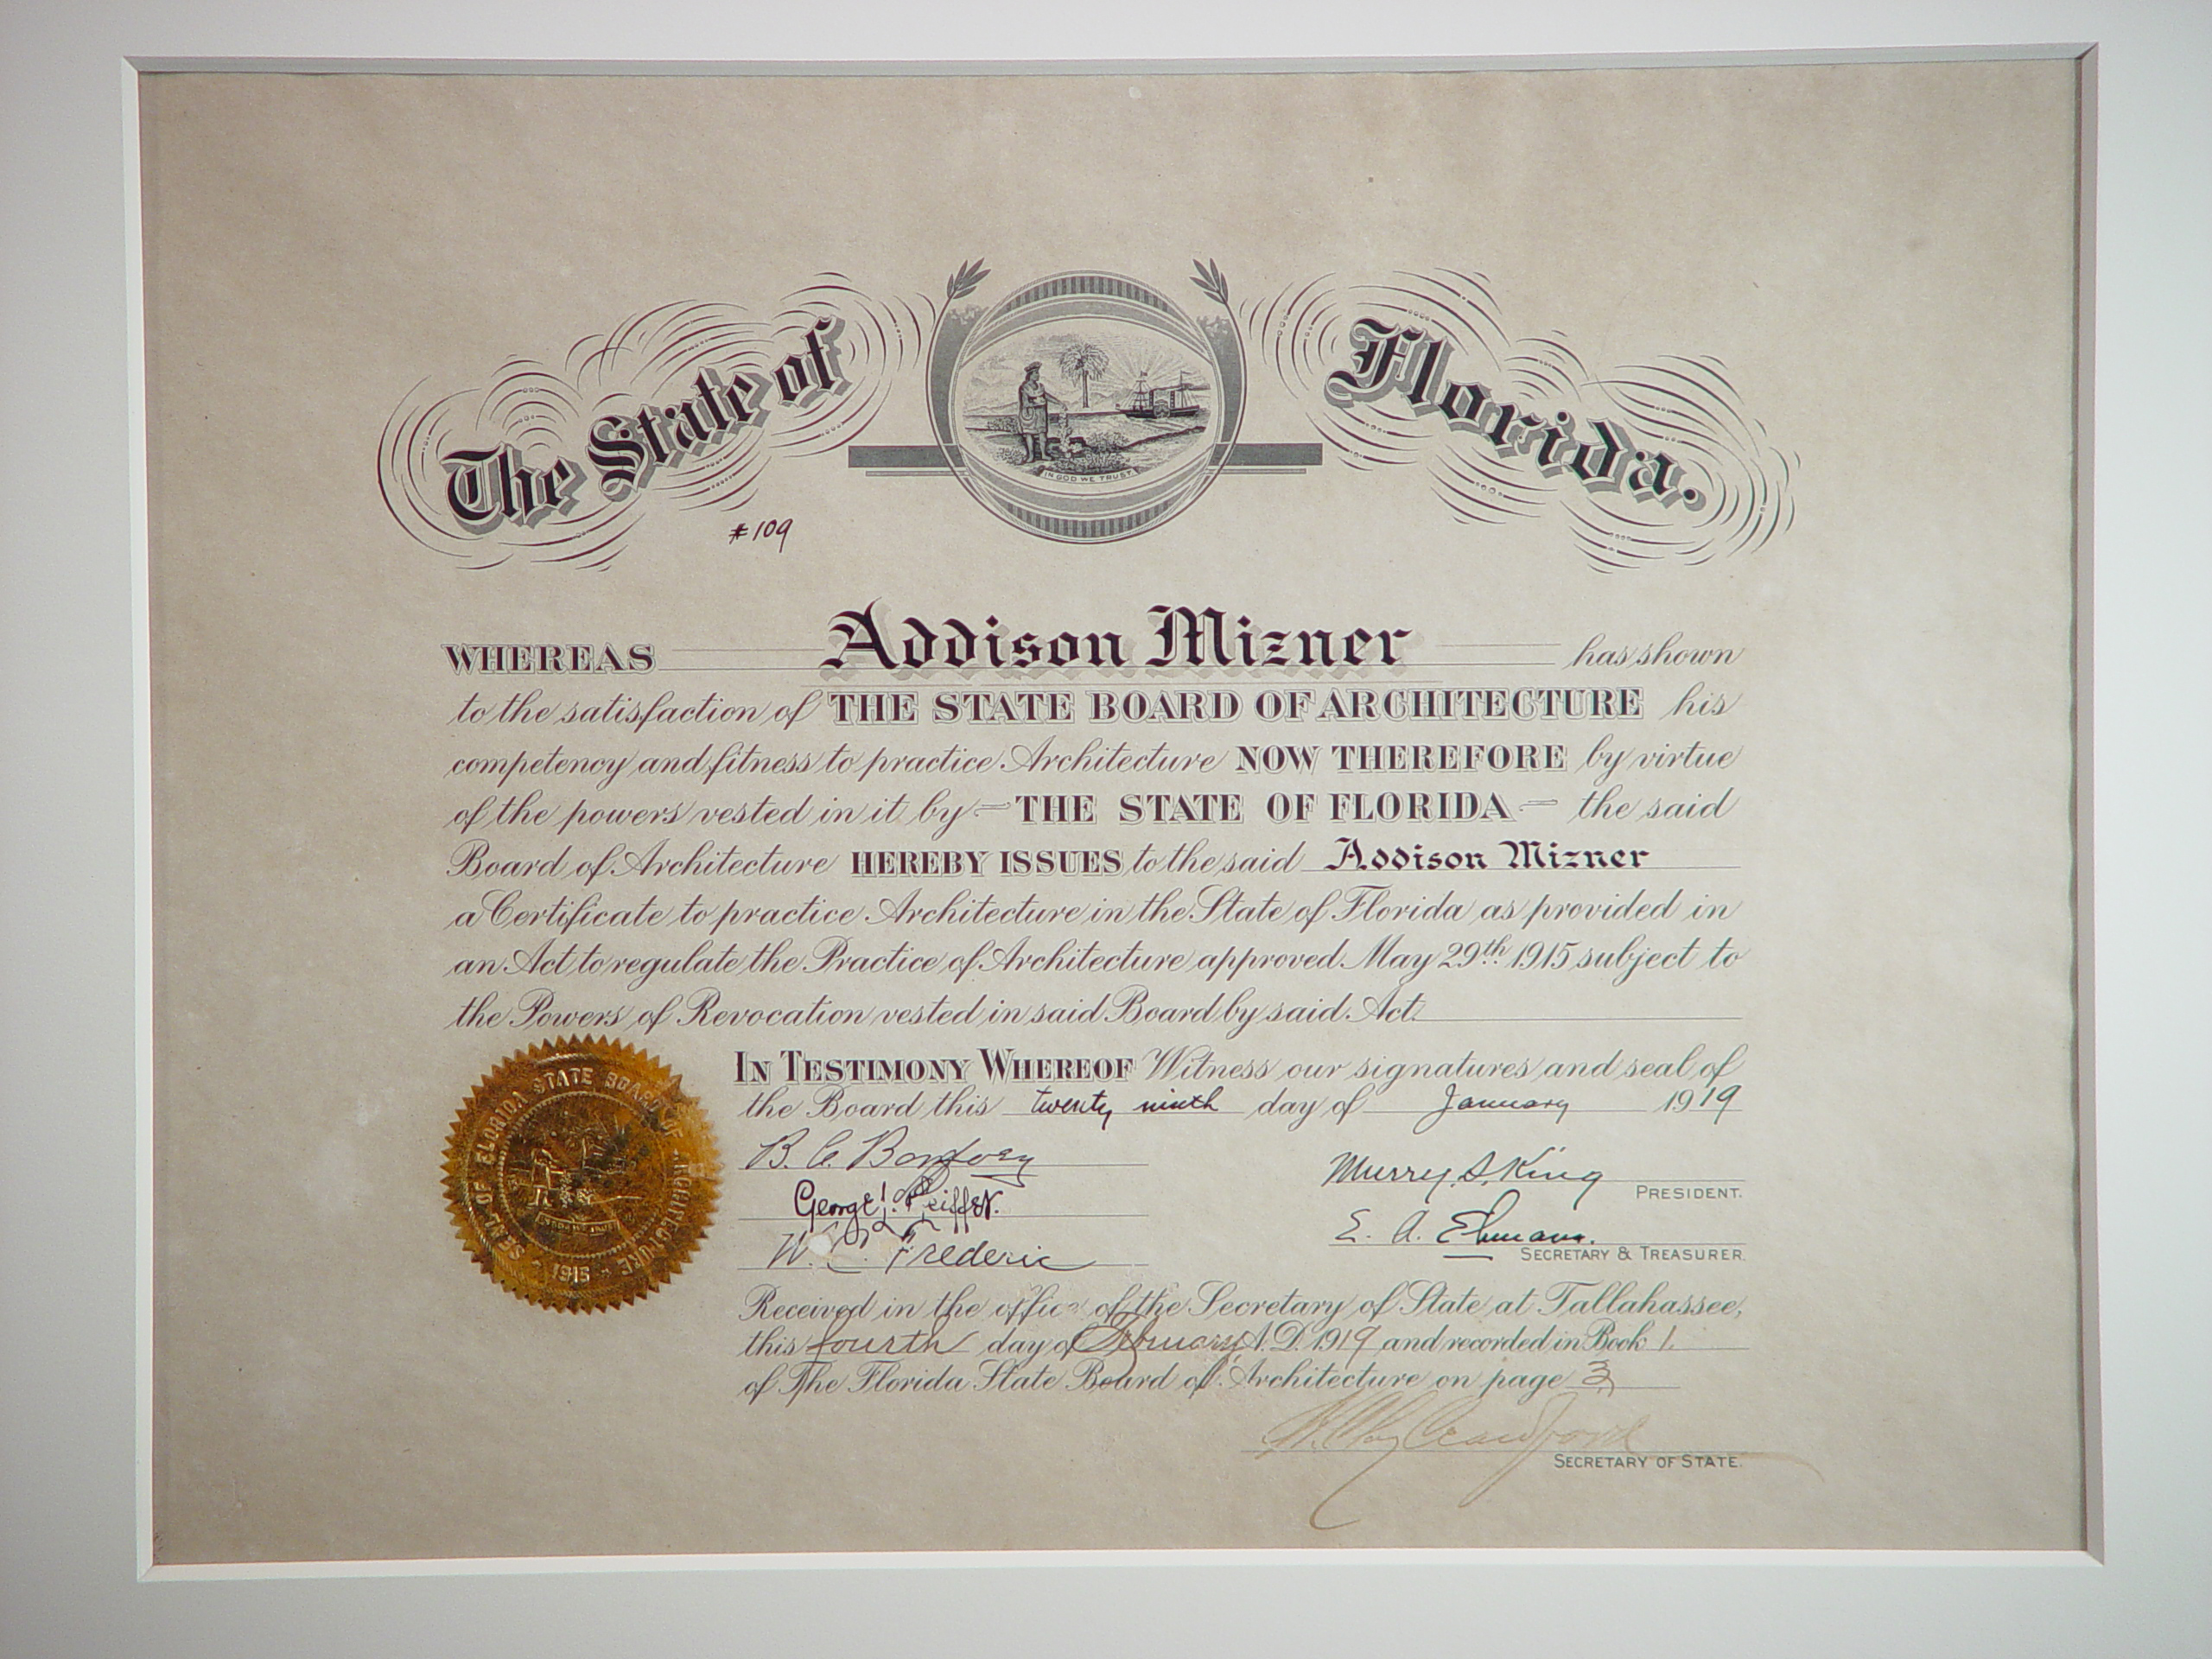 The State of Florida.
IN GOD WE TRUST
#109
WHEREAS Addison Mizner has shown
to the satisfaction of THE STATE BOARD OF ARCHITECTURE his
competency and fitness to practice Architecture NOW THEREFORE by virtue
of the powers vested in it by THE STATE OF FLORIDA the said
Board of Architecture HEREBY ISSUES to the said Addison Mizner
a Certificate to practice Architecture in the State of Florida as provided in
an Act to regulate the Practice of Architecture approved May 29th 1915 subject to
the Powers of Revocation vested in said Board by said Act.
SEAL OF FLORIDA STATE BOARD OF ARCHITECTURE
1915
IN TESTIMONY WHEREOF Witness our signatures and seal of
the Board this twenty ninth day of January 1919
B. C.
George Pfeiffer.
W. C. Frederic
Murry S. King
PRESIDENT.
E. A. Ehmann.
SECRETARY & TREASURER.
Received in the office of the Secretary of State at Tallahassee,
this fourth day of February A.D. 1919 and recorded in Book 1.
of The Florida State Board of Architecture on page 3
H. Clay Crawford
SECRETARY OF STATE.